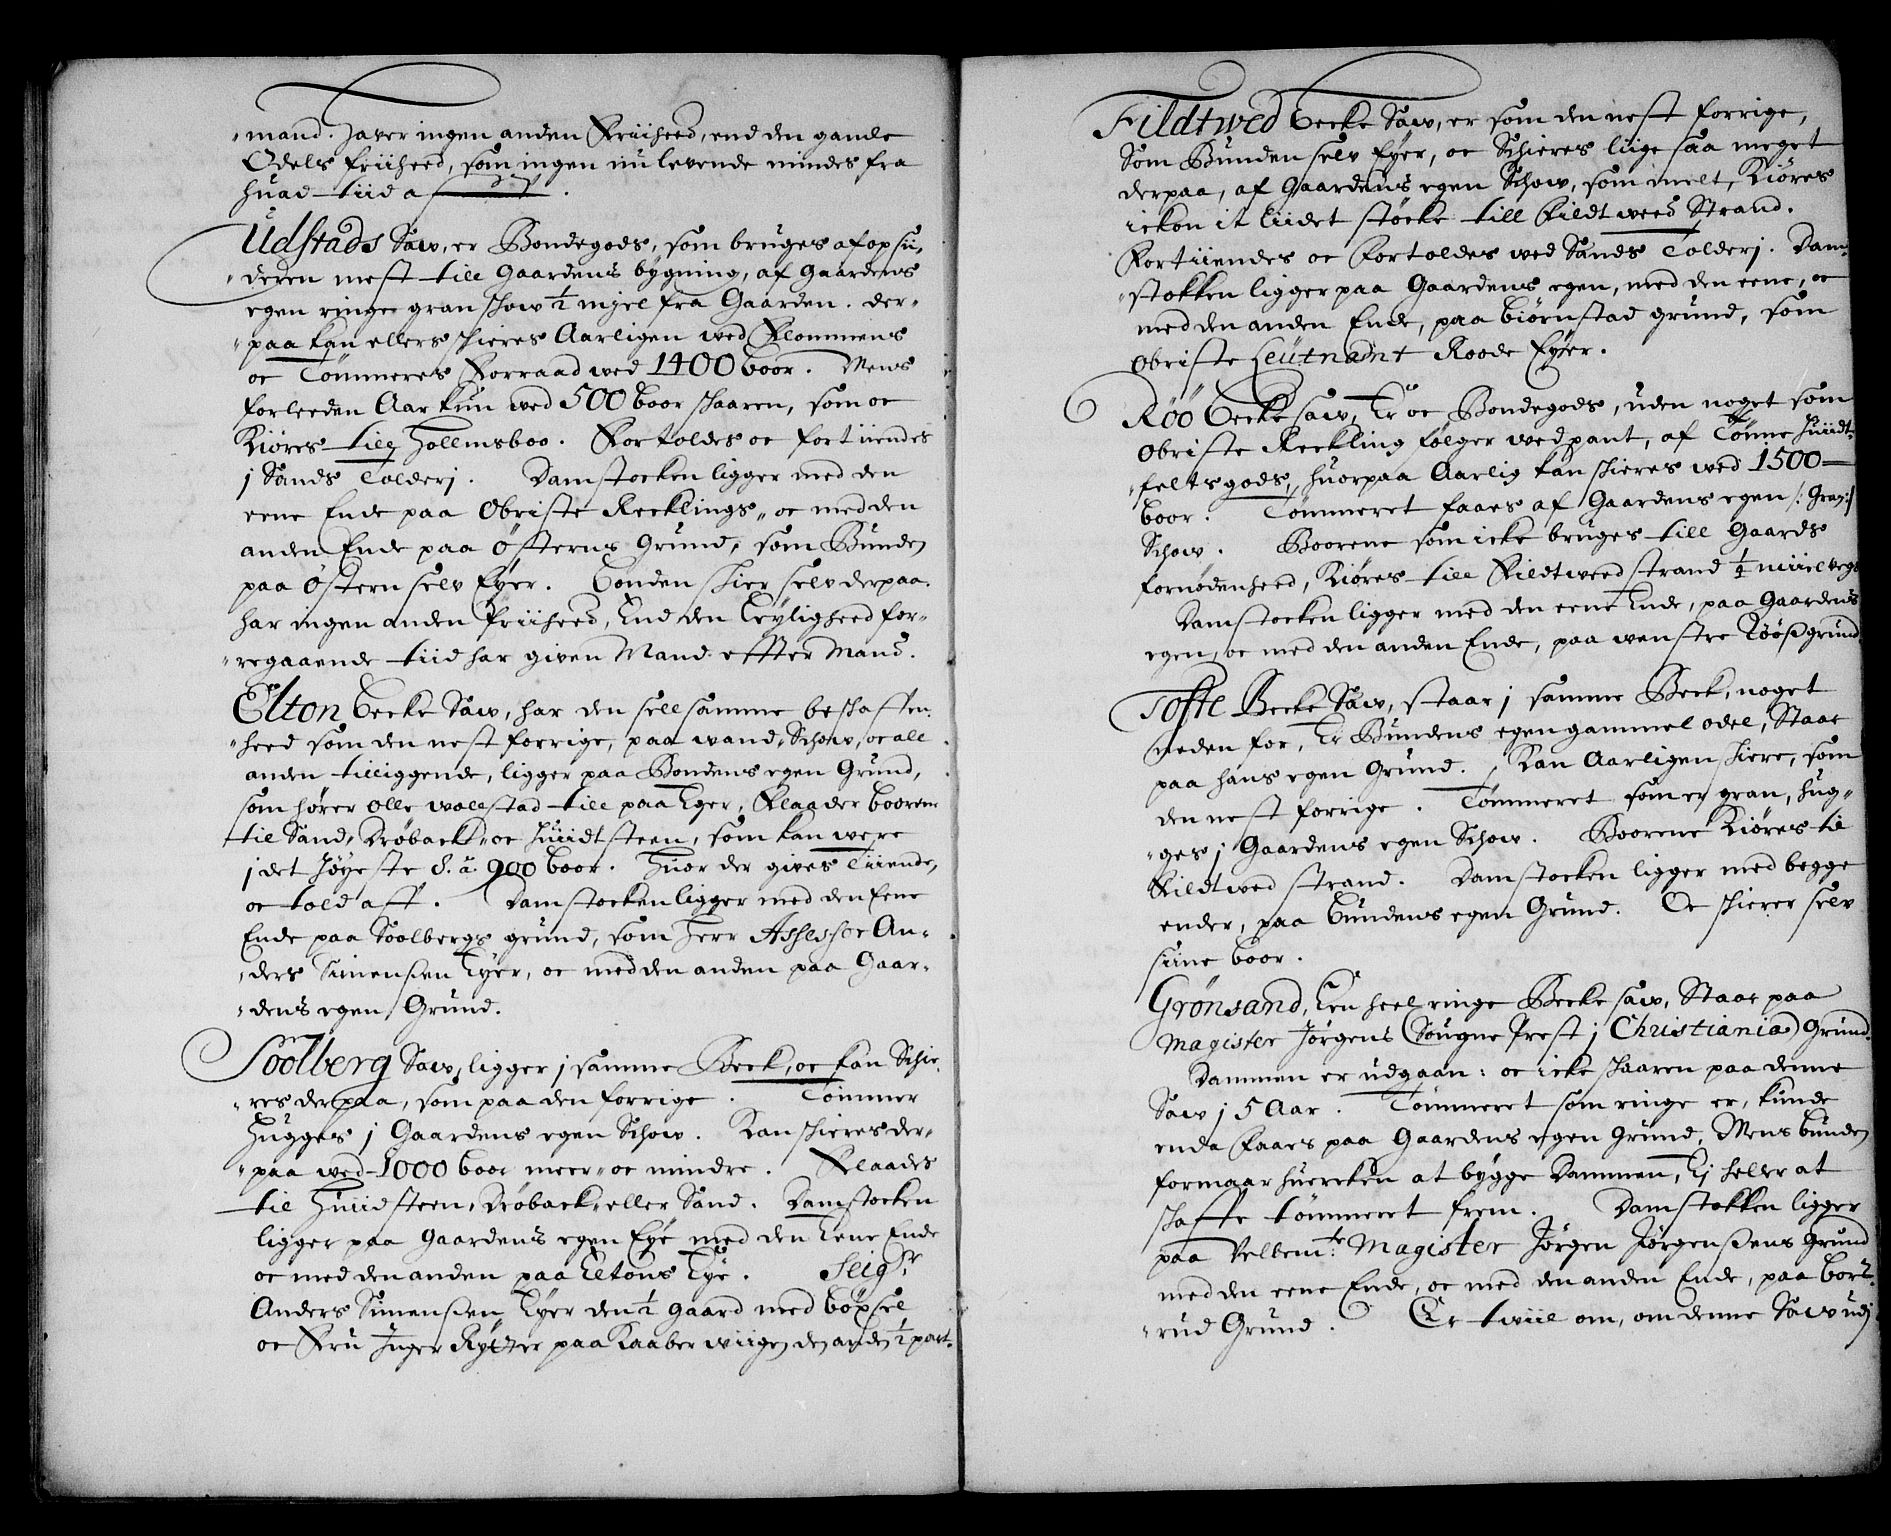 "mand. Haver ingen anden Friiheed, end den gamle
Odels friiheed, som ingen nu levende mindes fra
huad tiid af.
Udstads Saw, er Bondegods, som bruges af opsii-
"deren mest till Gaardens bygning, af Gaardens
egen ringe granschow ½ mijel fra Gaarden. der-
"paa kan ellers schieres Aarligen wed Flommens
oc Tømmeres Forraad wed 1400 boor. Mens
forleeden Aar kun wed 500 boor schaaren, som oc
Kiøres till Hollmsboo. Fortoldes oc fortiiendes
j Sands Tolderj. Damstocken ligger med den
eene Ende paa Obriste Recklings, oc med den
anden Ende paa Østerns Grund, som Bunden
paa Østern selv Eyer. Bonden skier selv derpaa.
har ingen anden friiheed, End den Leyligheed for-
"regaaende tiid har given Mand effter Mand.
Elton becke Saw, har den sellsamme beschaffen-
"heed som den nest forrige, paa wand, Schow, oc all
anden tilliggende, ligger paa Bondens egen Grund,
som hører Olle wollstad till paa Eger, Flaader boorene
til Sand, Drøback, oc Huidtsteen, som kan were
j det Høyeste 8. à. 900 boor. Huor der gives Tiiende,
oc told aff. Damstocken ligger med den Eene
Ende paa Soolbergs grund, som Herr Assessor An-
"ders Simensen Eyer, oc med den anden paa Gaar-
"dens egen Grund.
Soolberg Saw, ligger j samme Beck, oc kan Schie-
"res derpaa, som paa den forrige. Tømmer
Hugges j Gaardens egen Schow. Kan schieres der-
"paa wed 1000 boor meer oc mindre. Flaades
til Huiidsteen, Drøback, eller Sand. Damstocken
ligger paa Gaardens egen Eye med den Eene Ende
oc med den anden paa Eltons Eye. Seigr
Anders Simensen Eyer den ½ gaard med bøxsel
oc Fru Inger Rytter paa Kaaberwiigen den anden ½ part.
Fildtwed becke Saw, er som den nest forrige,
Som Bunden selv Eyer, oc Schieres liige saa meget
derpaa, af Gaardens egen Schow, som melt, Kiøres
icken it liidet støcke till Fildtweed Strand.
Fortiiendes oc Fortoldes wed Sands Tolderj. Dam-
"stokken ligger paa Gaardens egen, med den eene, oc
med den anden Ende, paa biørnstad grund, som
Obriste Leutnamt Roode Eyer.
Röö becke saw, Er oc Bondegods, uden noget som
Obriste Reckling følger wed pant, af Tønne Huiidt-
"feltsgods, huorpaa Aarlig kan schieres wed 1500
boor. Tømmeret faaes af Gaardens egen /: Gran:/
Schow. Boorene som icke bruges till Gaards
fornødenheed, Kiøres till Fildtweed strand ¼ miil vegs
Damstocken ligger med den eene Ende, paa Gaardens
egen, oc med den anden Ende, paa wenstre Röößgrund
Tofte Becke Saw, staar j samme Beck, noget
neden for, Er Bundens egen gammel odel, Staar
paa hans egen Grund. Kan Aarligen skiere, som
den nest forrige. Tømmeret som er gran, hug-
"ges j Gaardens egen Schow. Boorene Kiøres til
Fildtwed strand. Damstocken ligger med begge
ender, paa bundens egen Grund. Oc skierer selv
siine boor.
Grønsand, Een heel ringe Becke saw, Staar paa
Magister Jørgens (Sougne Prest j Christiania) Grund.
Dammen er udgaan: oc icke schaaren paa denne
Saw j 5 Aar. Tømmeret som ringe er, kunde
enda Faaes paa Gaardens egen grund, Mens bunden
formaar huercken at bygge Dammen, Ej heller at
schaffe tømmeret frem. Damstokken ligger
paa Velbemte: Magister Jørgen Jørgenßens Grund
med den eene Ende, oc med den anden Ende, paa bor-
"rud Grund. Er twiil om, om denne Saw udj